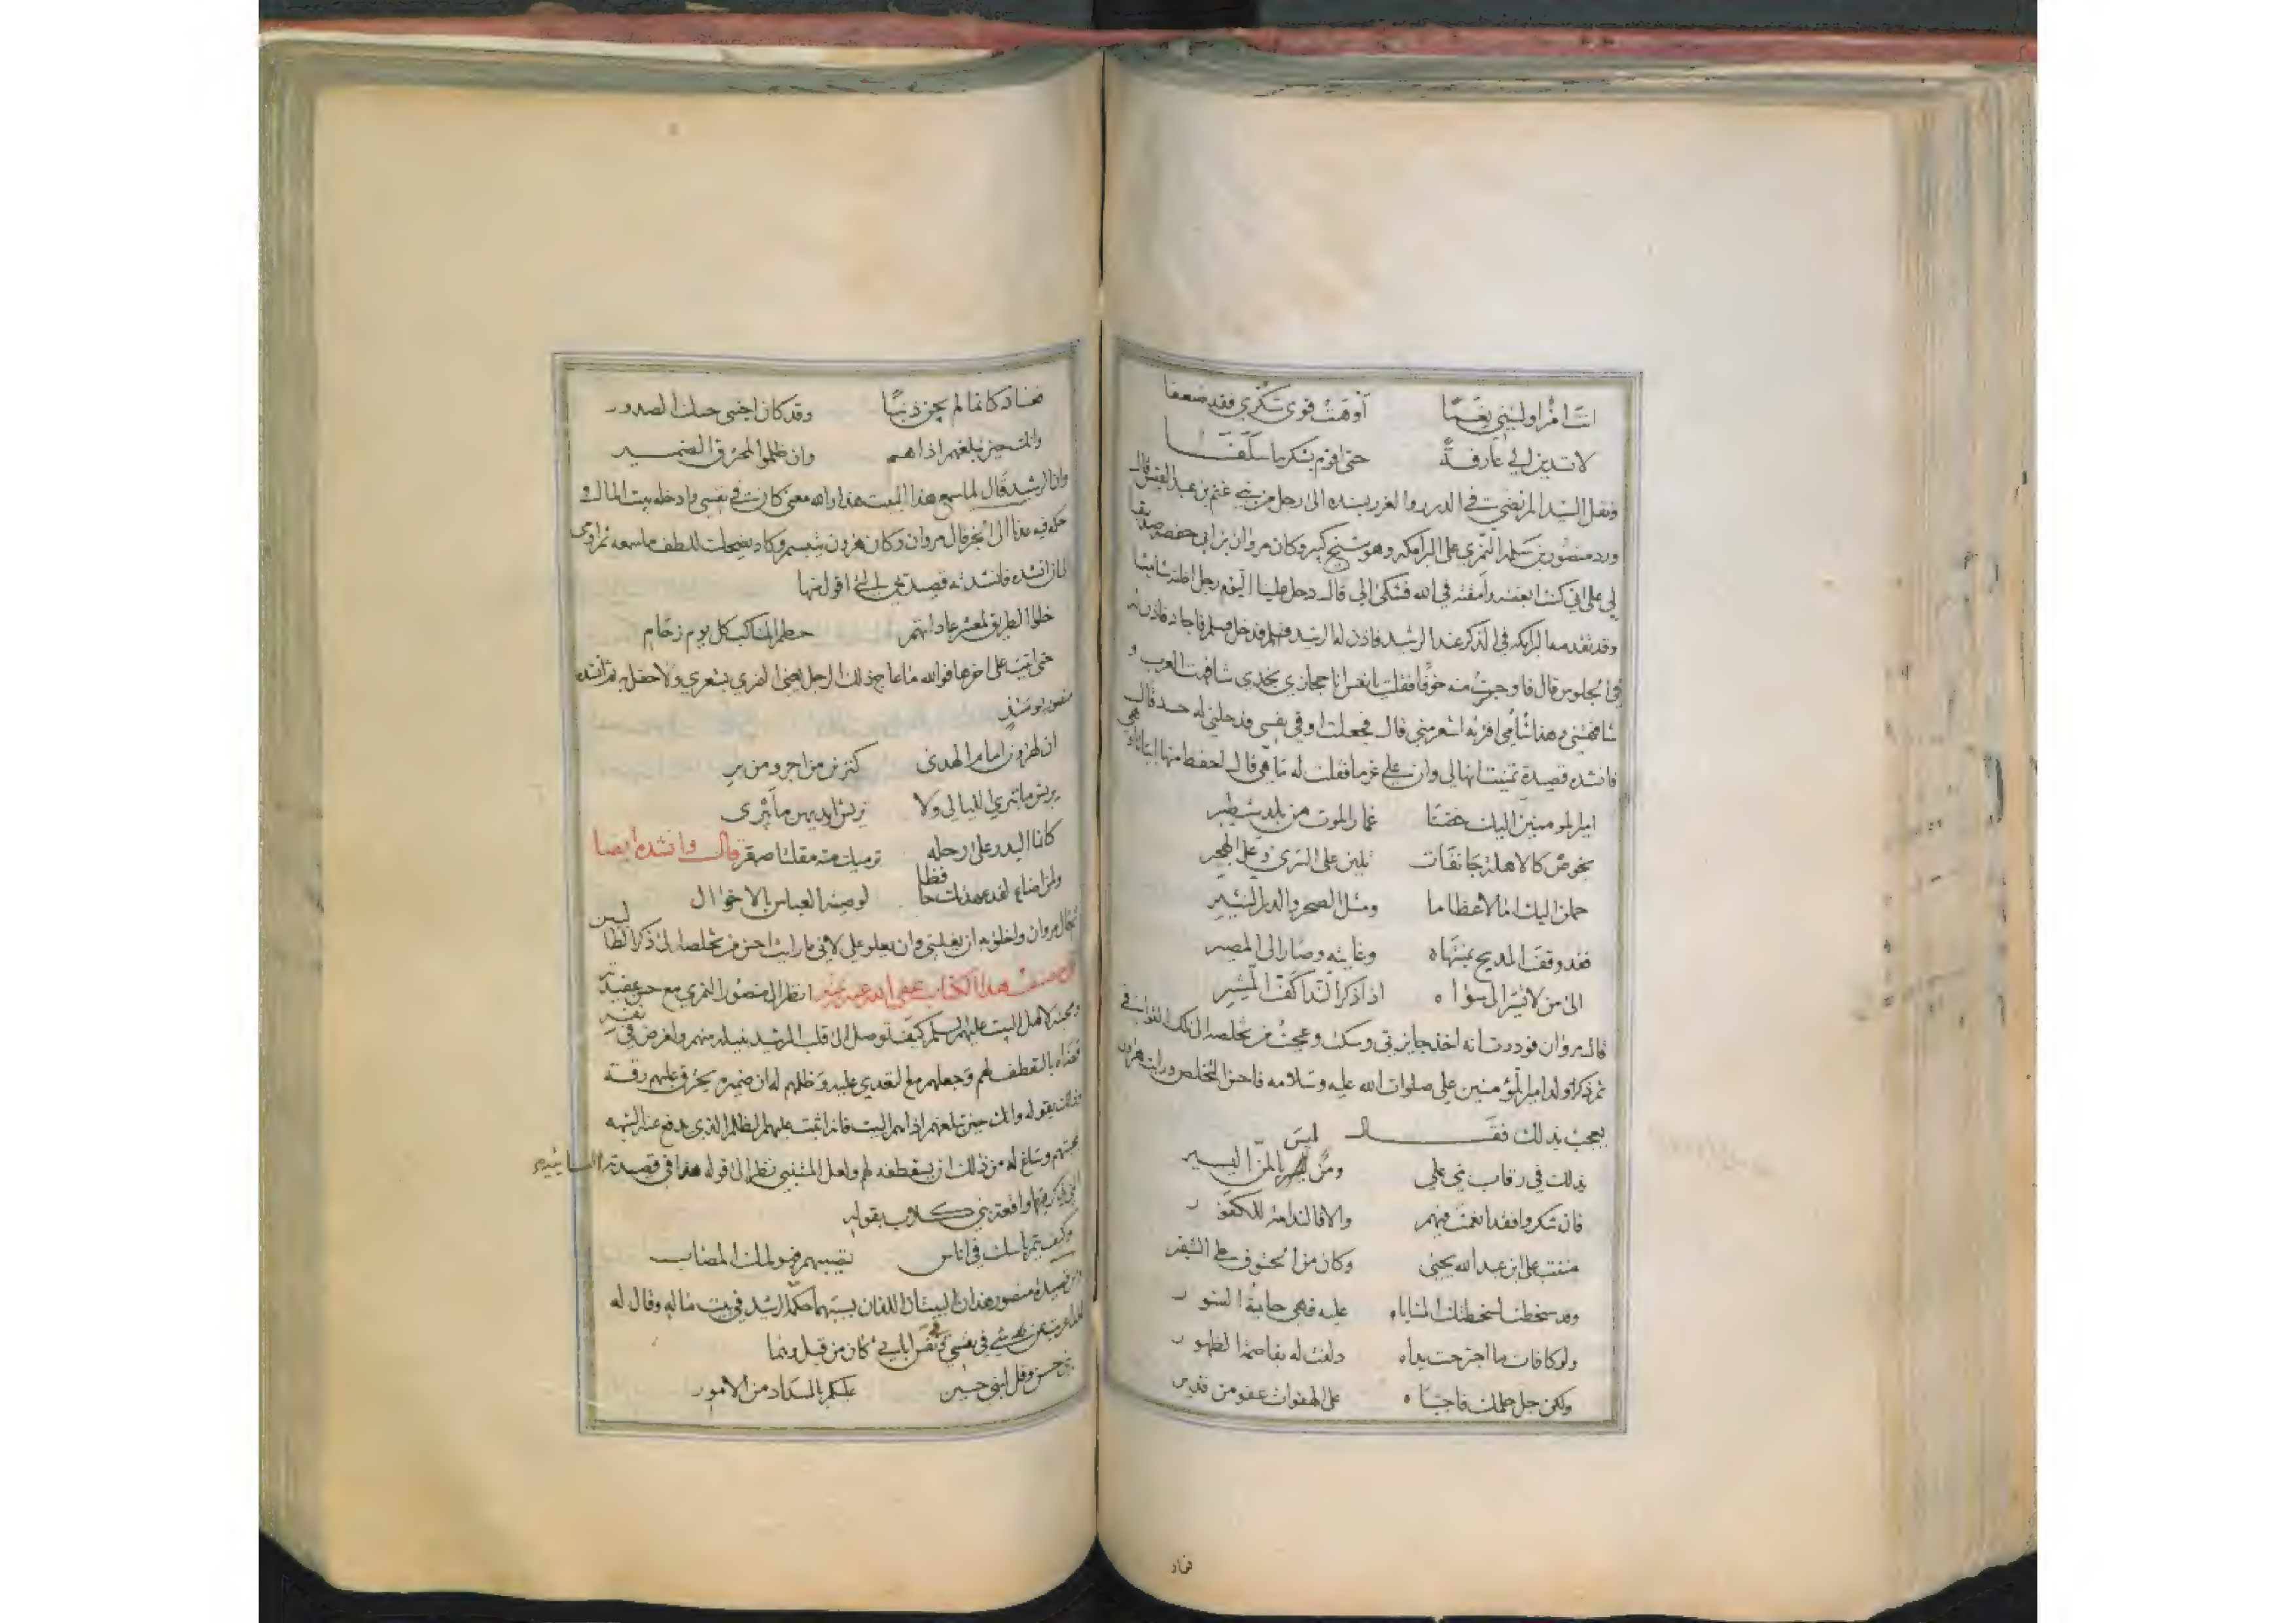 انت امرؤ اوليتني نعما اوهت قوى شكري فقد ضعفا
لا تدين الي عارفة حتى اقوم بشكر ما سلفا
ونقل السيد المرتضى في الدرر والغرر بسنده الى رجل من بني غنم بن عبد القيس قال
ورد منصور بن سلمة النمري على البرامكة وهو شيخ كبير وكان مروان بن ابي حفصة صديقا
لي على اني كنت ابغضه وامقته في الله فشكى الي قال دخل علينا اليوم رجل اظنه شاميا
وقد تقدمه البرامكة في الذكر عند الرشيد فاذن له الرشيد فدخل فسلم فاجاد فاذن له
في الجلوس قال فاوجست منه خوفا فقلت يا نفس انا حجازي نجدي شافهت العرب و
شافهتني وهذا شامي افتراه اشعر مني قال فجعلت ارقي نفسي
فانشده قصيدة تمنيت انها لي وان علي غرما فقلت له ما هي قال احفظ منها ابياتا وهي
امير المومنين اليك خضنا غمار الموت من بلد شطير
بخوص كالاهلة جانفات تلين على السرى وعلى الهجير
حملن اليك امالا عظاما ومثل الصخر والدر النثير
فقد وقف المديح بمنتهاه وغايته وصار الى المصير
الى من لا تشير الى سواه اذا ذكر الندا كف المشير
قال مروان فوددت انه اخذ جايزتي وسكت وعجبت من تخلصه الى تلك القوافي
ثم ذكر ولد امير المؤمنين علي صلوات الله عليه وسلامه فاحسن التخلص ورايت هرون
يعجب بذلك فقال
يد لك في رقاب بني علي ومن ليس بالمن اليسير
فان شكروا فقد انعمت فيهم والا فالندامة للكفور
مننت على ابن عبد الله يحيى وكان من الحتوف على الشفير
وقد سخطت لسخطتك المنايا عليه فهي حايمة النسور
ولو كافات ما اجترحت يداه دلفت له بقاصمة الظهور
ولكن جل حلمك فاجتباه على الهفوات عفو من قدير
فعاد
فعاد كانما لم يجن ذنبا وقد كان اجتنى حسك الصدور
وانك حين تبلغهم اذاهم وان ظلموا لمحترق الضمير
وان الرشيد قال لما سمع هذا البيت هذا والله معنى كان في نفسي وادخله بيت المال و
حكمه فيه عدنا الى الخبر قال مروان وكان هرون يتبسم وكاد يضحك للطف ما سمعه ثم اومى
الي ان انشده فانشدته قصيدتي التي اقول فيها
خلوا الطريق لمعشر عاداتهم حطم المناكب كل يوم زحام
حتى اتيت على اخرها فوالله ما عاج ذلك الرجل يعني النمري بشعري ولا حفل به ثم انشده
منصور يومئذ
ان لهرون امام الهدى كنزين من اجر ومن بر
يريش ما تبري الليالي ولا تريش ايديهن ما يبرى
كانما البدر على رحله ترميك منه مقلتا صقر قال وانشده ايضا
ولمن اضاع لقد عهدتك حافظا لوصية العباس بالاخوال
قال مروان واخلق به ان يغلبني وان يعلو علي لاني ما رايت احسن من تخلصه الى ذكر الطالبيين
قال مصنف هذا الكتاب عفى الله عنه انظر الى منصور النمري مع حسن عقيدته
ومحبته لاهل البيت عليهم السلم كيف توصل الى قلب الرشيد بنيله منهم واغرض في نفسه
فعزاه بالتعطف لهم وجعلهم مع التعدي عليه وظلمهم له ان ضميره يحترق عليهم رقة
وذلك بقوله وانك حين تبلغهم اذاهم البيت فانه اثبت عليهم الظلم الذي يدفع عنه الشبهه
بحبهم وساغ له من ذلك ان يستعطفه لهم ولعل المتنبي نظر الى قوله هذا في قصيدته البائية
التي ذكر فيها واقعة بني كلاب بقوله
وكيف يتم باسك في اناس تصيبهم فيولمك المصاب
ومن قصيدة منصور هذان البيتان اللذان بسببهما حكمه الرشيد في بيت ماله وقال له
بني حسن وقل لبني حسين عليكم بالسداد من الامور